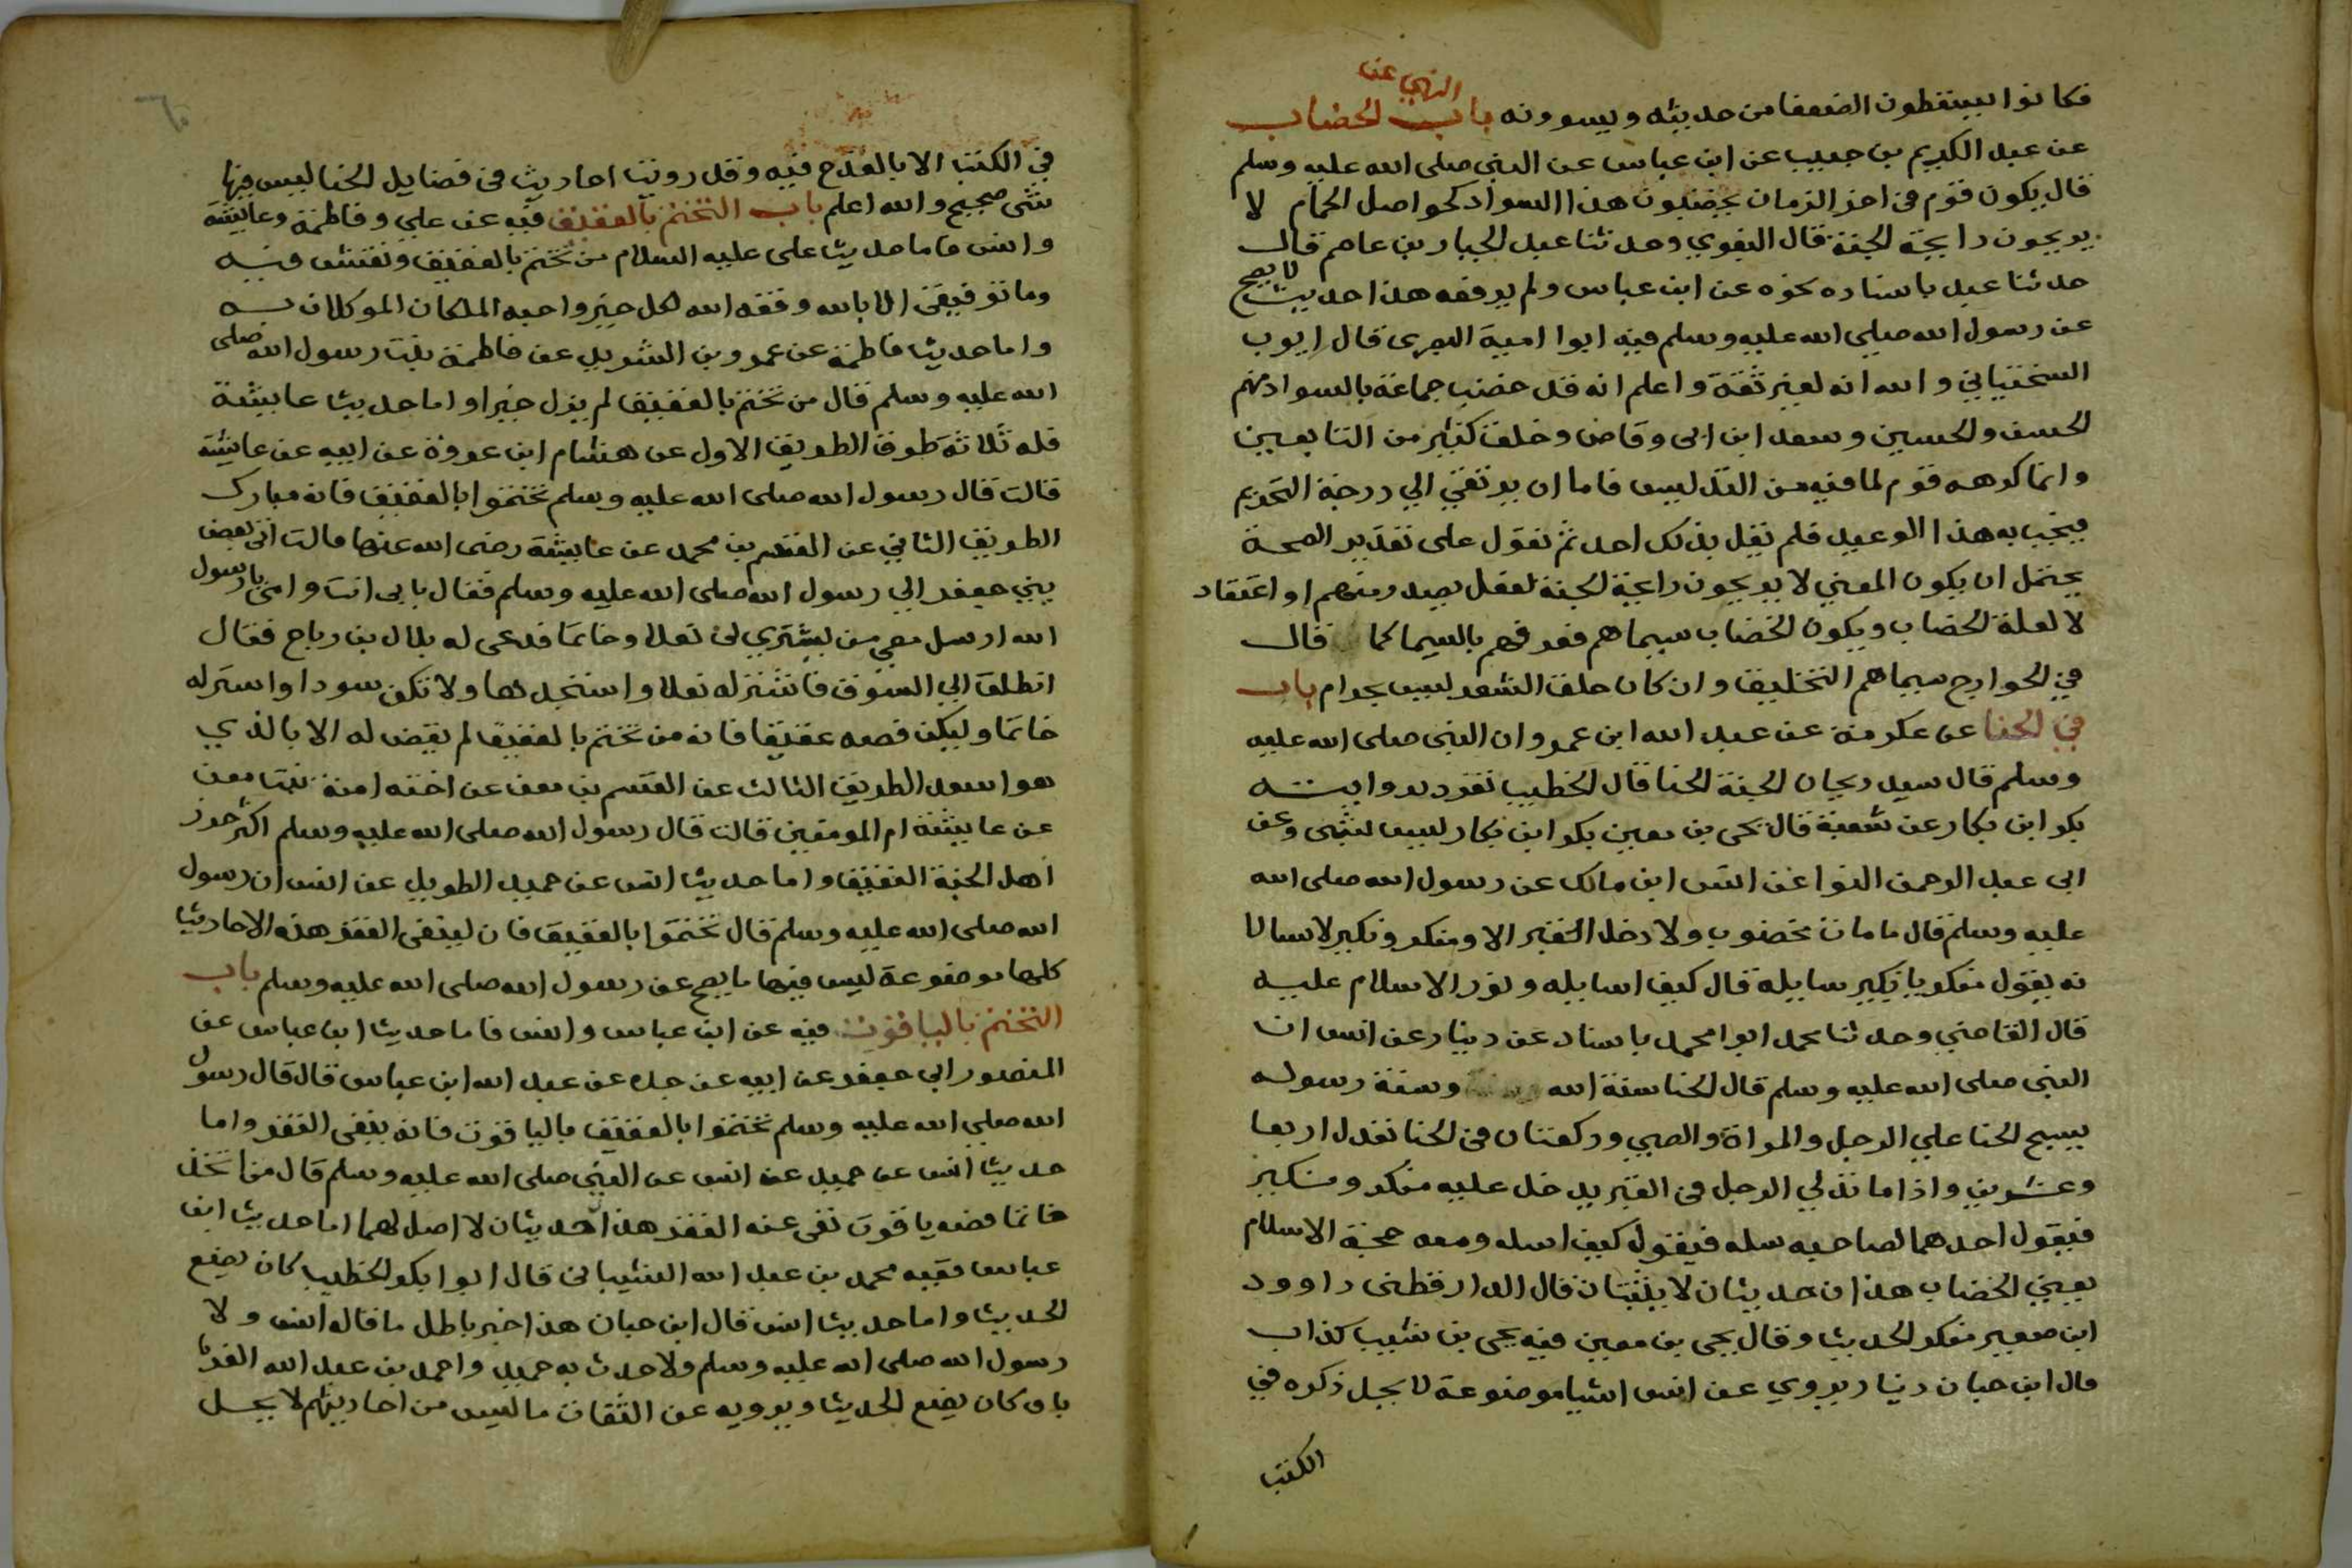 فكانوا يسقطون الضعفا من حديثه ويسوونه باب النهي عن الخضاب
عن عبد الكريم بن حبيب عن ابن عباس عن النبي صلى الله عليه وسلم
قال يكون قوم في اخر الزمان يخضبون هذا السواد كحواصل الحمام لا
يريحون رايحة الجنة قال البغوي وحدثنا عبد الجبار بن عاصم قال
حدثنا عبيد باسناده نحوه عن ابن عباس ولم يرفعه هذا حديث لا يصح
عن رسول الله صلى الله عليه وسلم فيه ابوا امية البصرى قال ايوب
السختياني والله انه لغير ثقة واعلم انه قد خضب جماعة بالسواد منهم
الحسن والحسين وسعد ابن ابي وقاص وخلق كثير من التابعين
وانما كرهه قوم لما فيه من التدليس فاما ان يرتقي الي درجة التحريم
فيجب به هذا الوعيد فلم يقل بذلك احد ثم نقول على تقدير الصحة
يحتمل ان يكون المعني لا يريحون رايحة الجنة لفعل يصدر منهم او اعتقاد
لا لعلة الخضاب ويكون الخضاب سيماهم فعرفهم بالسيما كما قال
في الخوارج سيماهم التحليق وان كان حلق الشعر ليس بحرام باب
في الحنا عن عكرمة عن عبد الله ابن عمرو ان النبي صلى الله عليه
وسلم قال سيد ريحان الجنة الحنا قال الخطيب تفرد بروايته
بكر ابن بكار عن شعبة قال يحي بن معين بكر ابن بكار ليس بشى وعن
ابي عبد الرحمن النوا عن انس ابن مالك عن رسول الله صلى الله
عليه وسلم قال ما مات مخضوب ولا دخل القبر الا ومنكر ونكير لاسالا
نه يقول منكر يا نكير سايله قال كيف اسايله ونور الاسلام عليه
قال القاضي وحدثنا محمد ابوا محمد باسناد عن دينار عن انس ان
النبى صلى الله عليه وسلم قال الحنا سنة الله وسنة رسوله
يسبح الحنا علي الرجل والمراة والصبي وركعتان في الحنا تعدل اربعا
وعشرين واذا ما تدلي الرجل في القبر يدخل عليه منكر ونكير
فيقول احدهما لصاحبه سله فيقول كيف اسله ومعه حجة الاسلام
يعيني الخضاب هذان حديثان لا يثبتان قال الدارقطنى داوود
ابن صغير منكر الحديث وقال يحي بن معين فيه يحي بن شبيب كذاب
قال ابن حبان دينار يروي عن انس اشيا موضوعة لا يحل ذكره في
الكتب
في الكتب الا بالقدح فيه وقد روينا احاديث في فضايل الحنا ليس فيها
شى صحيح والله اعلم باب التختم بالعقيق فيه عن علي وفاطمة وعايشة
وانس فاما حديث علي عليه السلام من تختم بالعقيق ونقش فيه
وما توفيقي الا بالله وفقه الله لكل خير واحبه الملكان الموكلان به
واما حديث فاطمة عن عمرو بن الشريد عن فاطمة بنت رسول الله صلى
الله عليه وسلم قال من تختم بالعقيق لم يزل خيرا واما حديث عايشة
فله ثلاثة طرق الطريق الاول عن هشام ابن عروة عن ابيه عن عايشة
قالت قال رسول الله صلى الله عليه وسلم تختموا بالعقيق فانه مبارك
الطريق الثاني عن القسم بن محمد عن عايشة رضي الله عنها قالت اتى بعض
بني جعفر الي رسول الله صلى الله عليه وسلم فقال بابى انت وامي يا رسول
الله ارسل معي من يشتري لي نعلا وخاتما فدعى له بلال بن رباح فقال
انطلق الي السوق فاشتر له نعلا واستجدها ولا تكن سودا واشتر له
خاتما وليكن فصه عقيقا فانه من تختم بالعقيق لم يقض له الا بالذي
هو اسعد الطريق الثالث عن القسم بن معن عن اخته امنة بنت معن
عن عايشة ام المومنين قالت قال رسول الله صلى الله عليه وسلم اكثر خرز
اهل الجنة العقيق واما حديث انس عن حميد الطويل عن انس ان رسول
الله صلى الله عليه وسلم قال تختموا بالعقيق فان لينفى الفقر هذه الاحاديث
كلها موضوعة ليس فيها ما يصح عن رسول الله صلى الله عليه وسلم باب
التختم بالياقوت فيه عن ابن عباس وانس فاما حديث ابن عباس عن
المنصور ابي جعفر عن ابيه عن جده عن عبد الله ابن عباس قال قال رسول
الله صلي الله عليه وسلم تختموا بالعقيق بالياقوت فانه ينفى الفقر واما
حديث انس عن حميد عن انس عن النبي صلى الله عليه وسلم قال من اتخذ
خاتما فصه ياقوت نفى عنه الفقر هذا احديثان لا اصل لهما اما حديث ابن
عباس ففيه محمد بن عبد الله الشيباني قال ابوا بكر الخطيب كان يضع
الحديث واما حديث انس قال ابن حبان هذا خبر باطل ما قاله انس ولا
رسول الله صلى الله عليه وسلم ولا حدث به حميد واحمد بن عبد الله الفر
يا وكان يضع الحديث ويرويه عن الثقات ما ليس من احاديثهم لا يحل